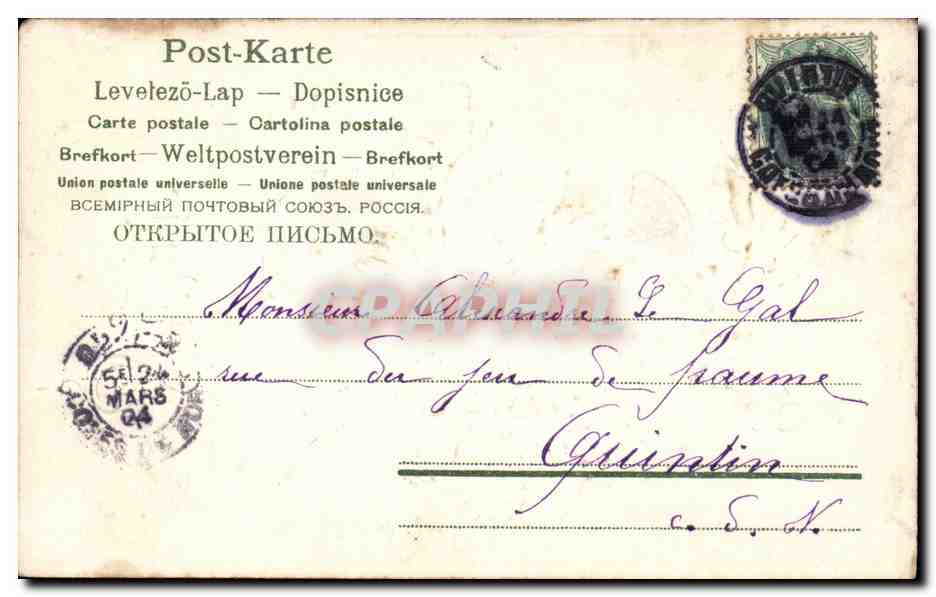 Post-Karte
Levelező-Lap — Dopisnice
Carte postale — Cartolina postale
Brefkort — Weltpostverein — Brefkort
Union postale universelle — Unione postale universale
ВСЕМІРНЫЙ ПОЧТОВЫЙ СОЮЗЪ. РОССІЯ.
ОТКРЫТОЕ ПИСЬМО.
Monsieur Alexandre Le Gal
rue du jeu de paume
Quintin
C. d. N.
CPAPHIL
5E 2
MARS
04
QUINTIN